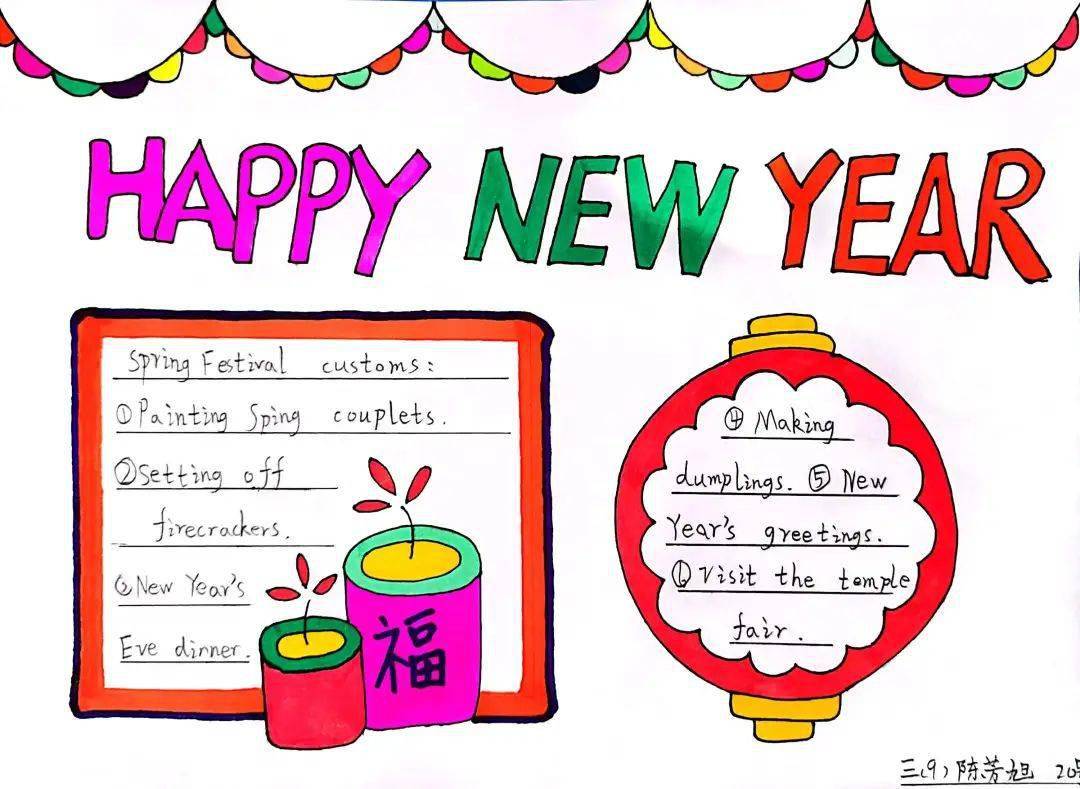 HAPPY NEW YEAR
Spring Festival customs:
①Painting Sping couplets.
②Setting off
firecrackers.
③New Year's
Eve dinner.
福
④ Making
dumplings. ⑤ New
Year's greetings.
⑥ Visit the temple
fair.
三(9) 陈芳旭 20号